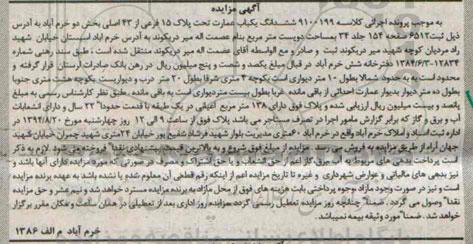 آگهی مزایده
به موجب پرونده اجرائی کلاسه ۹۱۰۰۱۹۹ ششدانگ یکباب عمارت تحت پلاک ۱۵ فرعی از ۴۳ اصلی بخش دو خرم آباد به آدرس
ذیل ثبت ۶۵۱۲ صفحه ۱۵۴ جلد ۳۴ بمساحت دویست متر مربع بنام عصمت اله میر دریکوند به آدرس خرم آباد اسبستان خیابان شهید
راد مردیان کوچه شهید میر دریکوند ثبت و صادر و مع الواسطه آقای عصمت اله میر دریکوند منتقل شده است. طبق سند رهنی شماره
۱۲۸۳۴-۱۳۸۴/۶/۳ دفترخانه شش خرم آباد در قبال مبلغ یکصد و شصت و پنج میلیون ریال در رهن بانک صادرات لرستان قرار گرفته و
محدود است به حدود شمالا بطول ۱۰ متر دیواری است بکوچه ۴ متری شرقا بطول ۲۰ متر درب و دیواریست بکوچه سه متری جنوبا
بطول ده متر دیوار بدیوار عمارت احداثی از باقی مانده غربا بیست متر دیواری است به باقی مانده. طبق نظر کارشناس رسمی به مبلغ
پانصد و بیست میلیون ریال ارزیابی شده و پلاک فوق دارای ۱۳۸ متر مربع اعیانی در یک طبقه با قدمت حدودا ۲۲ سال و دارای انشعابات
آب و برق و گاز که برابر گزارش مامور اجرا در تصرف مستاجر می باشد پلاک فوق از ساعت ۹ الی ۱۲ روز چهارشنبه مورخ ۱۳۹۴/۸/۲۰ در
اداره ثبت اسناد و املاک خرم آباد واقع در خرم آباد ۶۰ متری مدیریت بلوار شهید فرشاد شفیع پور خیابان ۲۴ متری شهید چمران خیابان شهید
جهان آرام از طریق مزایده به فروش می رسد. مزایده از مبلغ فوق شروع و به بالاترین قیمت پیشنهادی نقدا فروخته می شود. لازم به ذکر
است پرداخت بدهی های مربوط به آب برق گاز اعم از حق انشعاب و یا حق اشتراک و مصرف در صورتی که مورد مزایده دارای آنها باشد و
نیز بدهی های مالیاتی و عوارض شهرداری و غیره تا تاریخ مزایده اعم از اینکه رقم قطعی آن معلوم شده یا نشده باشد به عهده برنده مزایده
است و نیز در صورت وجود مازاد وجوه پرداختی بابت هزینه های فوق از محل مازاد به برنده مزایده مسترد خواهد شد و نیم عشر و حق مزایده
نقدا وصول می گردد. ضمنا چنانچه روز مزایده تعطیل رسمی گردد مزایده روز اداری بعد از تعطیلی در همان ساعت و مکان مقرر برگزار
خواهد شد. ضمنا مورد وثیقه بیمه نمیباشد.
خرم آباد م الف ۱۳۸۶